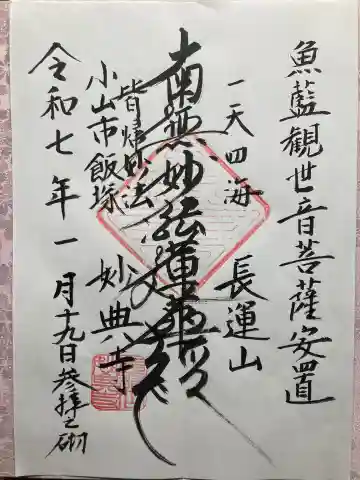 魚藍観世音菩薩安置
長運山
一天四海
南無妙法蓮華経
皆帰妙法
妙典寺
小山市飯塚
令和七年一月十九日参拝之砌